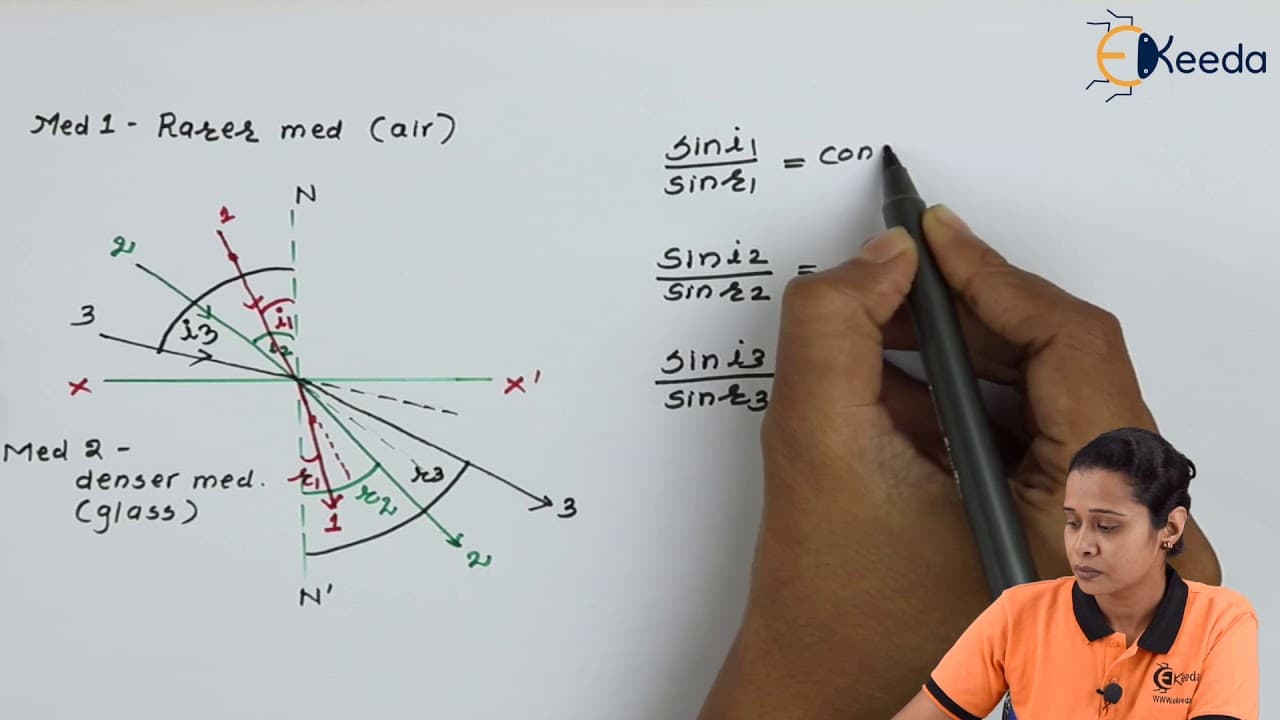 EKeeda
Med 1 - Rarer med (air)
N
1
2
3
i1
i2
i3
X
X'
Med 2 -
denser med.
(glass)
r1
r2
r3
1
2
3
N'
sin i1
sin r1
= con
sin i2
sin r2
=
sin i3
sin r3
EKeeda
www.ekeeda